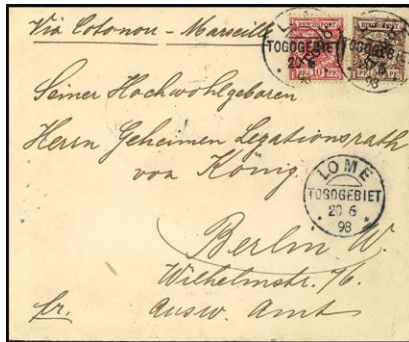 Via Cotonou - Marseille
LOME
TOGOGEBIET
20 6
TOGOGEBIET
98
Seiner Hochwohlgeboren
Herrn Geheimen Legationsrath
von König
LOME
TOGOGEBIET
20 6
98
Berlin W.
Wilhelmstr. 76.
fr. Ausw. Amt